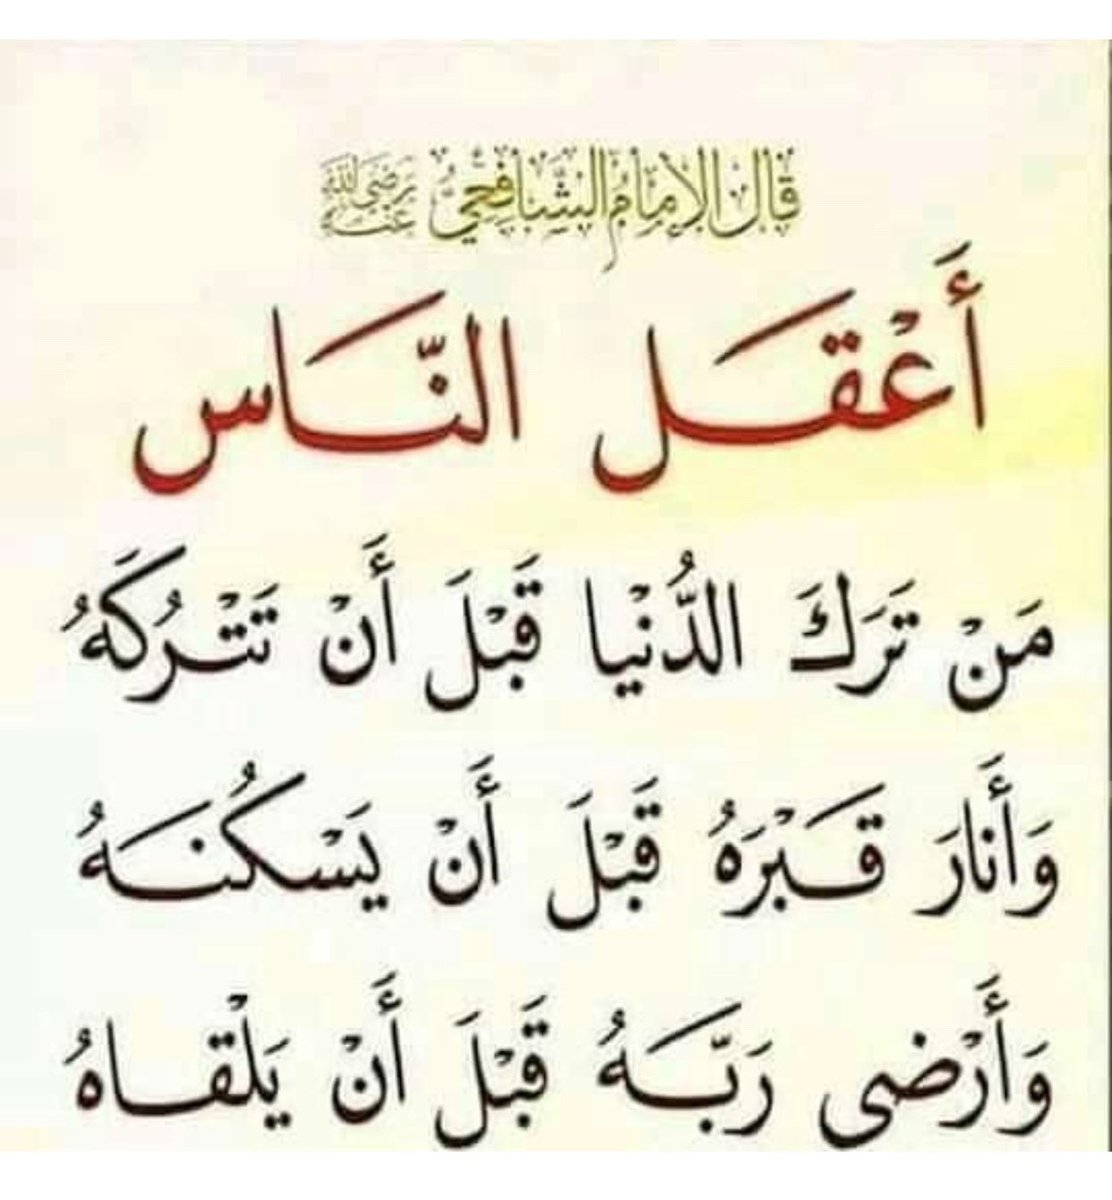 قَالَ الإِمَامُ الشَّافِعِيُّ رَضِيَ اللَّهُ عَنْهُ
أَعْقَل النَّاس
مَنْ تَرَكَ الدُّنْيا قَبْلَ أَنْ تَتْرُكَهُ
وَأَنارَ قَبْرَهُ قَبْلَ أَنْ يَسْكُنَهُ
وَأَرْضى رَبَّهُ قَبْلَ أَنْ يَلْقاهُ